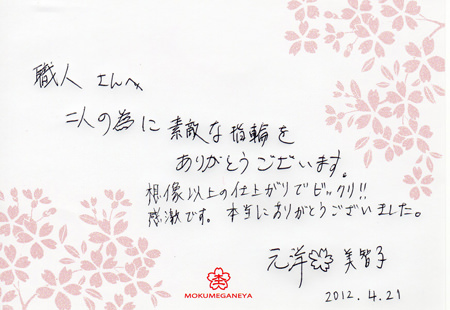 職人 さんへ
二人の為に 素敵な指輪を
ありがとうございます。
想像以上の仕上がりでビックリ!!
感激です。本当にありがとうございました。
元洋 美智子
MOKUMEGANEYA
2012.4.21